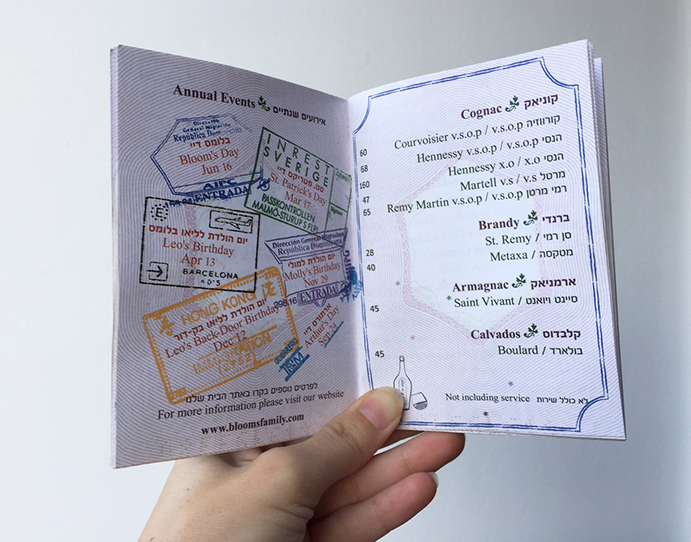 Annual Events אירועים שנתיים
Dirección
General Migración
Republica Dominicana
בלומס דיי
Bloom's Day
Jun 16
ENTRADA
INREST
SVERIGE
סט. פטריקס דיי
St. Patrick's Day
Mar 17
PASSKONTROLLEN
MALMÖ-STURUP
E
יום הולדת לליאו בלומס
Leo's Birthday
Apr 13
BARCELONA
Dirección General Migraciones
Republica Dominicana
יום הולדת למולי
Molly's Birthday
Nov 29
ENTRADA
HONG KONG
יום הולדת לליאו בק-דור
Leo's Back-Door Birthday
Dec 12
IMMIGRATION
(2752)
ארתורס דיי
Arthur's Day
Sep 24
לפרטים נוספים בקרו באתר הבית שלנו
For more information please visit our website
www.bloomsfamily.com
Cognac קוניאק
60 Courvoisier v.s.o.p / v.s.o.p קורווזיה
68 Hennessy v.s.o.p / v.s.o.p הנסי
160 Hennessy x.o / x.o הנסי
47 Martell v.s / v.s מרטל
65 Remy Martin v.s.o.p / v.s.o.p רמי מרטן
Brandy ברנדי
28 St. Remy / סן רמי
40 Metaxa / מטקסה
Armagnac ארמניאק
45 Saint Vivant / סיינט ויואנט
Calvados קלבדוס
45 Boulard / בולארד
Not including service לא כולל שירות